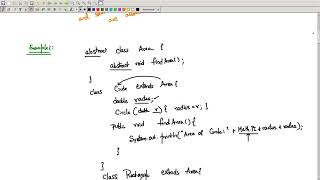 and
are
Example:
abstract class Area {
abstract void findArea();
}
class Circle extends Area {
double radius;
Circle (double r) { radius = r; }
public void findArea() {
System.out.println("Area of Circle:" + Math.PI * radius * radius);
}
}
class Rectangle extends Area {